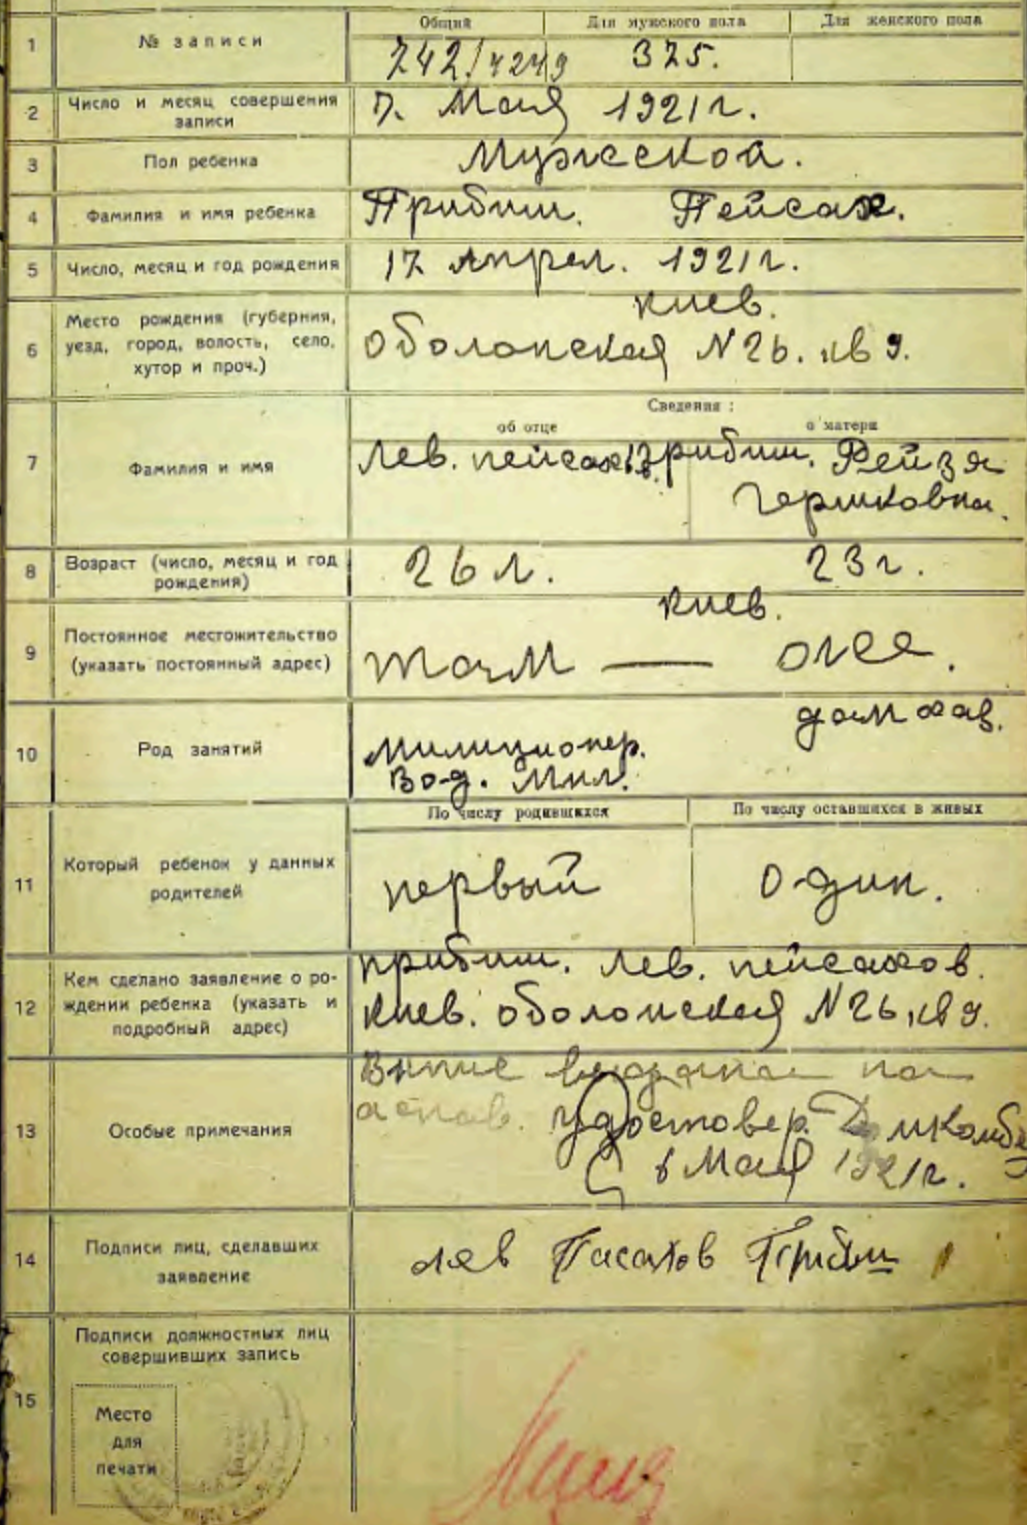 Общий Для мужского пола Для женского пола
1 № записи 742/4249 375.
2 Число и месяц совершения
записи 7. Мая 1921 г.
3 Пол ребенка Мужской.
4 Фамилия и имя ребенка Прибиш. Пейсах.
5 Число, месяц и год рождения 17 Апрел. 1921 г.
Киев.
6 Место рождения (губерния,
уезд, город, волость, село,
хутор и проч.) Оболонская N 26. кв 9.
Сведения:
об отце о матери
7 Фамилия и имя Лев. пейсахов. Прибиш. Рейзя
Гершковна.
8 Возраст (число, месяц и год
рождения) 26 л. 23 г.
Киев.
9 Постоянное местожительство
(указать постоянный адрес) там — же.
10 Род занятий дом хаз.
Милиционер.
Вод. Мил.
По числу родившихся По числу оставшихся в живых
11 Который ребенок у данных
родителей первый один.
12 Кем сделано заявление о ро-
ждении ребенка (указать и
подробный адрес) прибиш. Лев. пейсахов.
Киев. Оболонская N 26 кв 9.
13 Особые примечания
удостовер.
6 Мая 1921 г.
14 Подписи лиц, сделавших
заявление лев Пасахов Прибиш
15 Подписи должностных лиц
совершивших запись
Место
для
печати